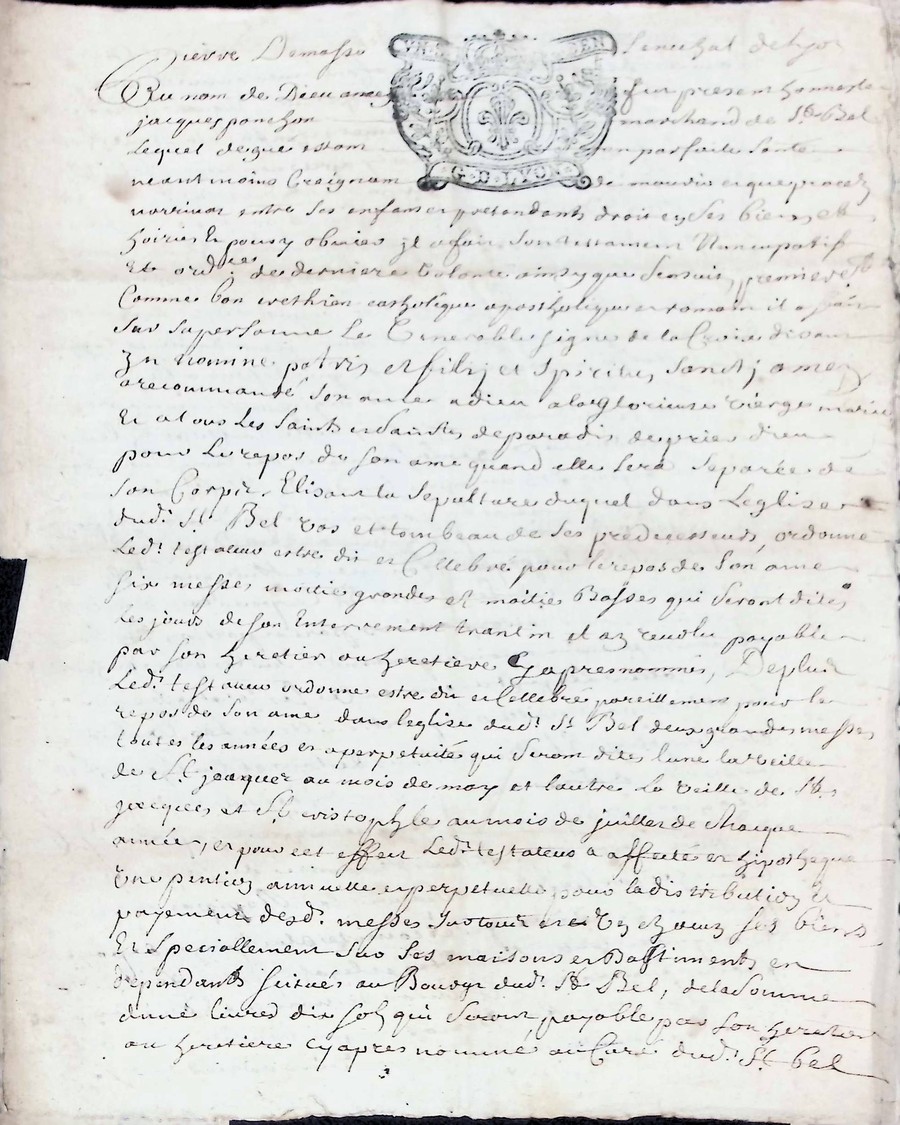 Pierre Demasso Senechal de Lyon
Au nom de Dieu amen fut present honneste
jacques ponchon marchand de St Bel
Lequel de gré estant en parfaite sante
neantmoins Craignant de mourir et que procez
narrivat entre ses enfans et pretendants droit en ses biens et
hoiries Et pour y obvier jl a fait son testament Nuncupatif
Et ordce de derniere volonté ainsy que sensuit, premieremt
Comme bon crethien catholique apostholique et romain il a fait
sur sa personne Le Venerable signe de la Croix disant
Jn nomine patris et filij et spiritus sanctj amen
a recommandé son ame a dieu a la Glorieuse vierge marie
Et a tous Les saints et saintes de paradis de prier dieu
pour Le repos de son ame quand elle sera separée de
son Corps, Elisant la sepulture duquel dans Leglise
dudt St Bel vas et tombeau de ses predecesseurs, ordonne
Ledt testateur estre dit et Cellebré pour le repos de son ame
six messes moitie grandes et moities Basses qui seront dites
Les jours de son Enterrement trantin et an revolu payable
par son heretier ou heretiere Cy apres nommés, De plus
Ledt testateur ordonne estre dit et Cellebré pareillement pour le
repos de son ame dans leglise dudt St Bel deux grandes messes
toutes les années et a perpetuité qui seront dites lune la veille
de St jacques au mois de may et lautre La veille de Sts
jacques et St cristophle au mois de juillet de chaque
année, et pour cet effect Ledt testateur a affecté et hipotheque
Une pention annuelle et perpetuelle pour la distribution et
payement desdt messes sur tous et un chacun ses biens
Et speciallement sur ses maisons et Bastiments en
dependants scitués au Bourg dudt St Bel, de la somme
dune livres dix sols qui seront payable par son heretier
ou heretiere cy apres nommé au Curé dudt St bel
G. D. LYON